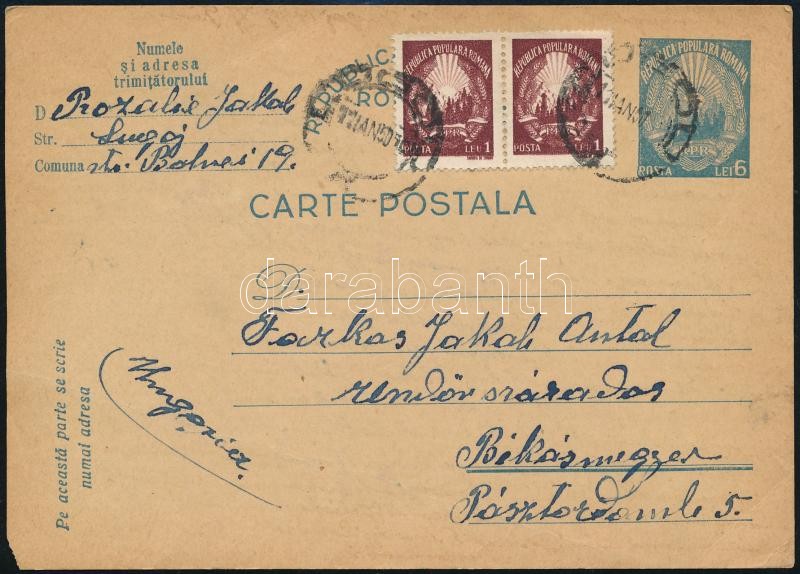 Numele
și adresa
trimițătorului
D Rozalie Jakab
Str. Lugoj
Comuna str.
19.
REPUBLICA POPULARA ROMANA
RPR
POSTA LEI 1
REPUBLICA POPULARA ROMANA
RPR
POSTA LEI 1
REPUBLICA POPULARA ROMANA
RPR
POSTA LEI 6
CARTE POSTALA
darabanth
D.
Farkas Jakab Antal
rendörszázados
Békásmegyer
5.
Ungaria.
Pe această parte se scrie
numai adresa